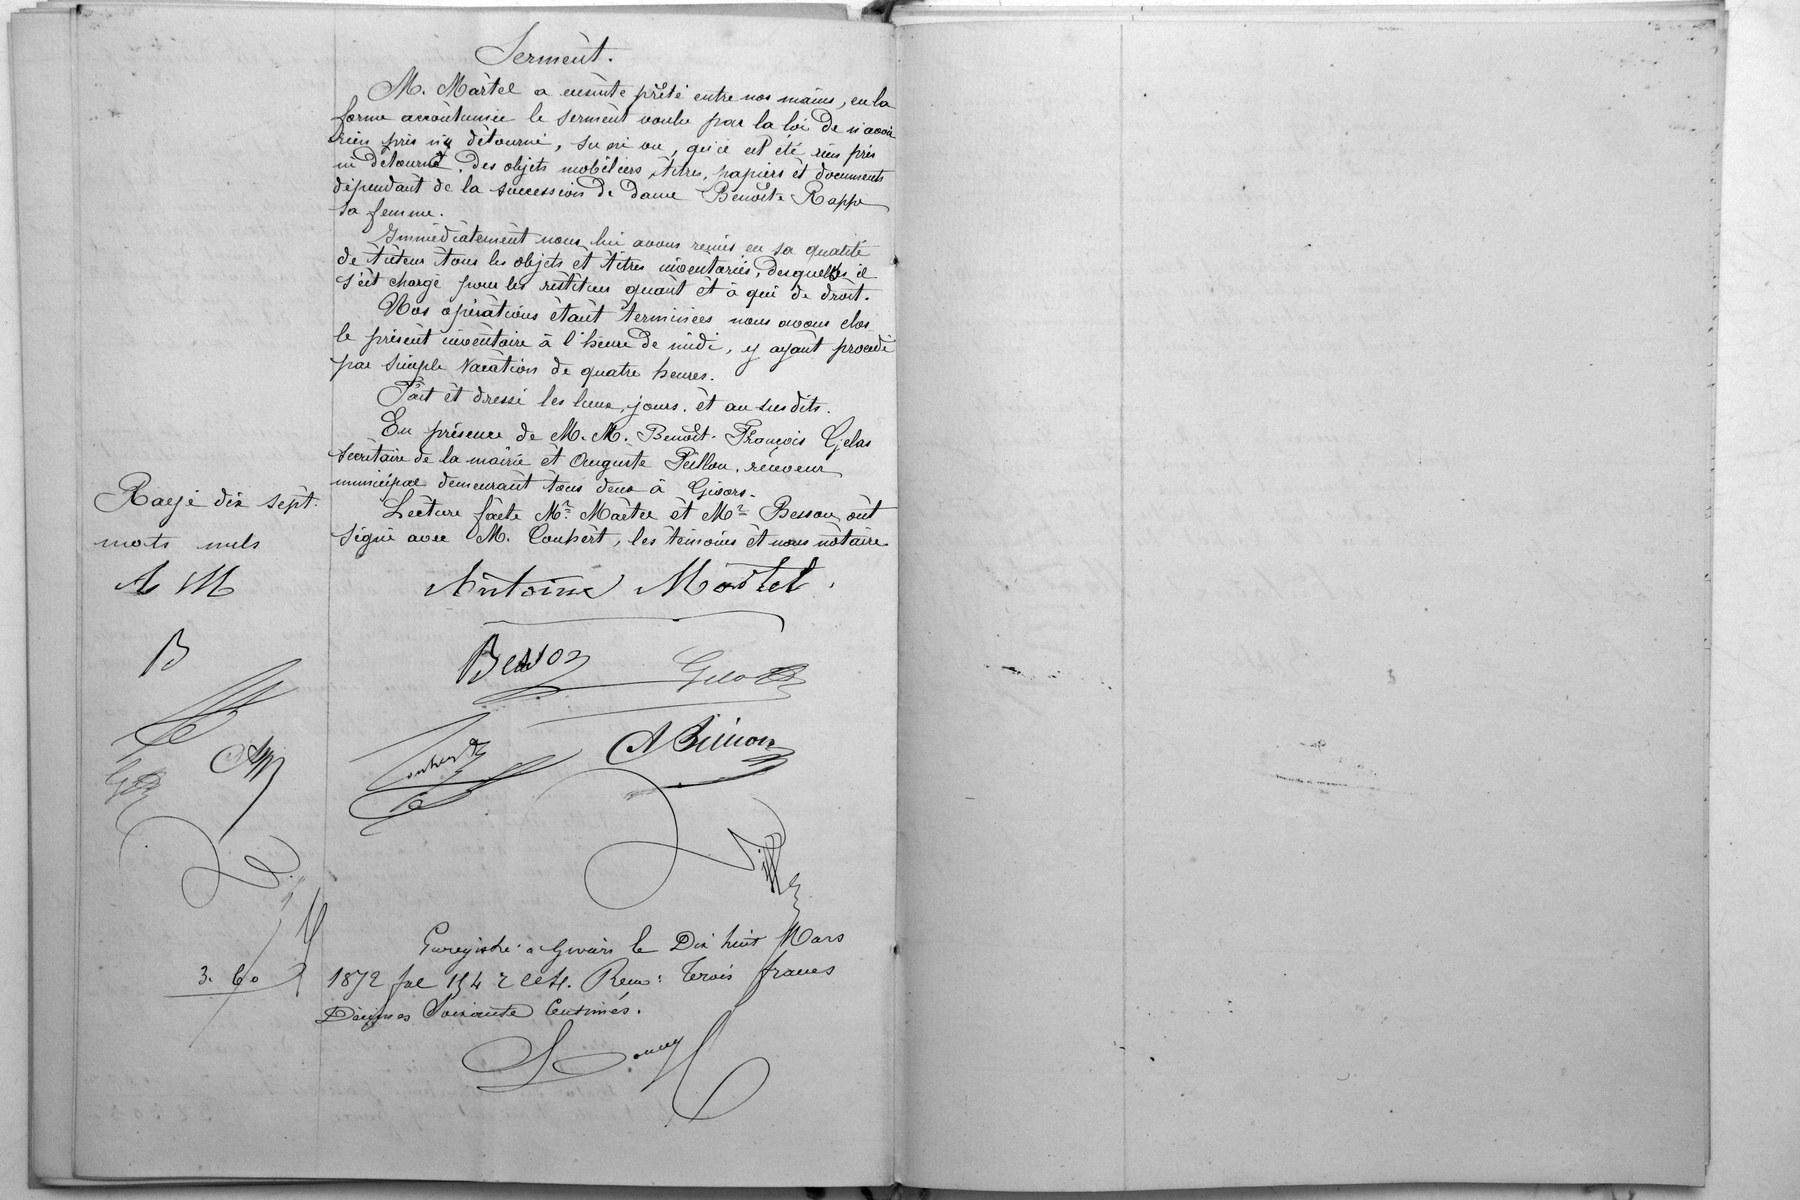 Serment.
M. Martel a ensuite prêté entre nos mains, en la
forme accoutumée le serment voulu par la loi de n'avoir
rien pris ni détourné, su ni vu, qu'il eut été rien pris
ni détourné, des objets mobiliers, titres, papiers et documents
dépendant de la succession de dame Benoîte Rappe
sa femme.
Immédiatement nous lui avons remis en sa qualité
de tuteur tous les objets et titres inventoriés, desquels il
s'est chargé pour les restituer quant et à qui de droit.
Nos opérations étant terminées nous avons clos
le présent inventaire à l'heure de midi, y ayant procédé
par simple vacation de quatre heures.
Fait et dressé les lieux, jours. et an susdits.
En présence de M. M. Benoît François Gelas
secrétaire de la mairie et Auguste receveur
municipal demeurant tous deux à Givors.
Rayé dix sept
mots nuls
Lecture faite Mr. Martel et Mr Besson ont
signé avec M. Conhert, les témoins et nous notaire
A M
Antoine Martel.
B
Besson
Gelas
Enregistré à Givors le Dix huit Mars
3. 60
1872 fol Reçu: trois francs
Décimes Soixante Centimes.